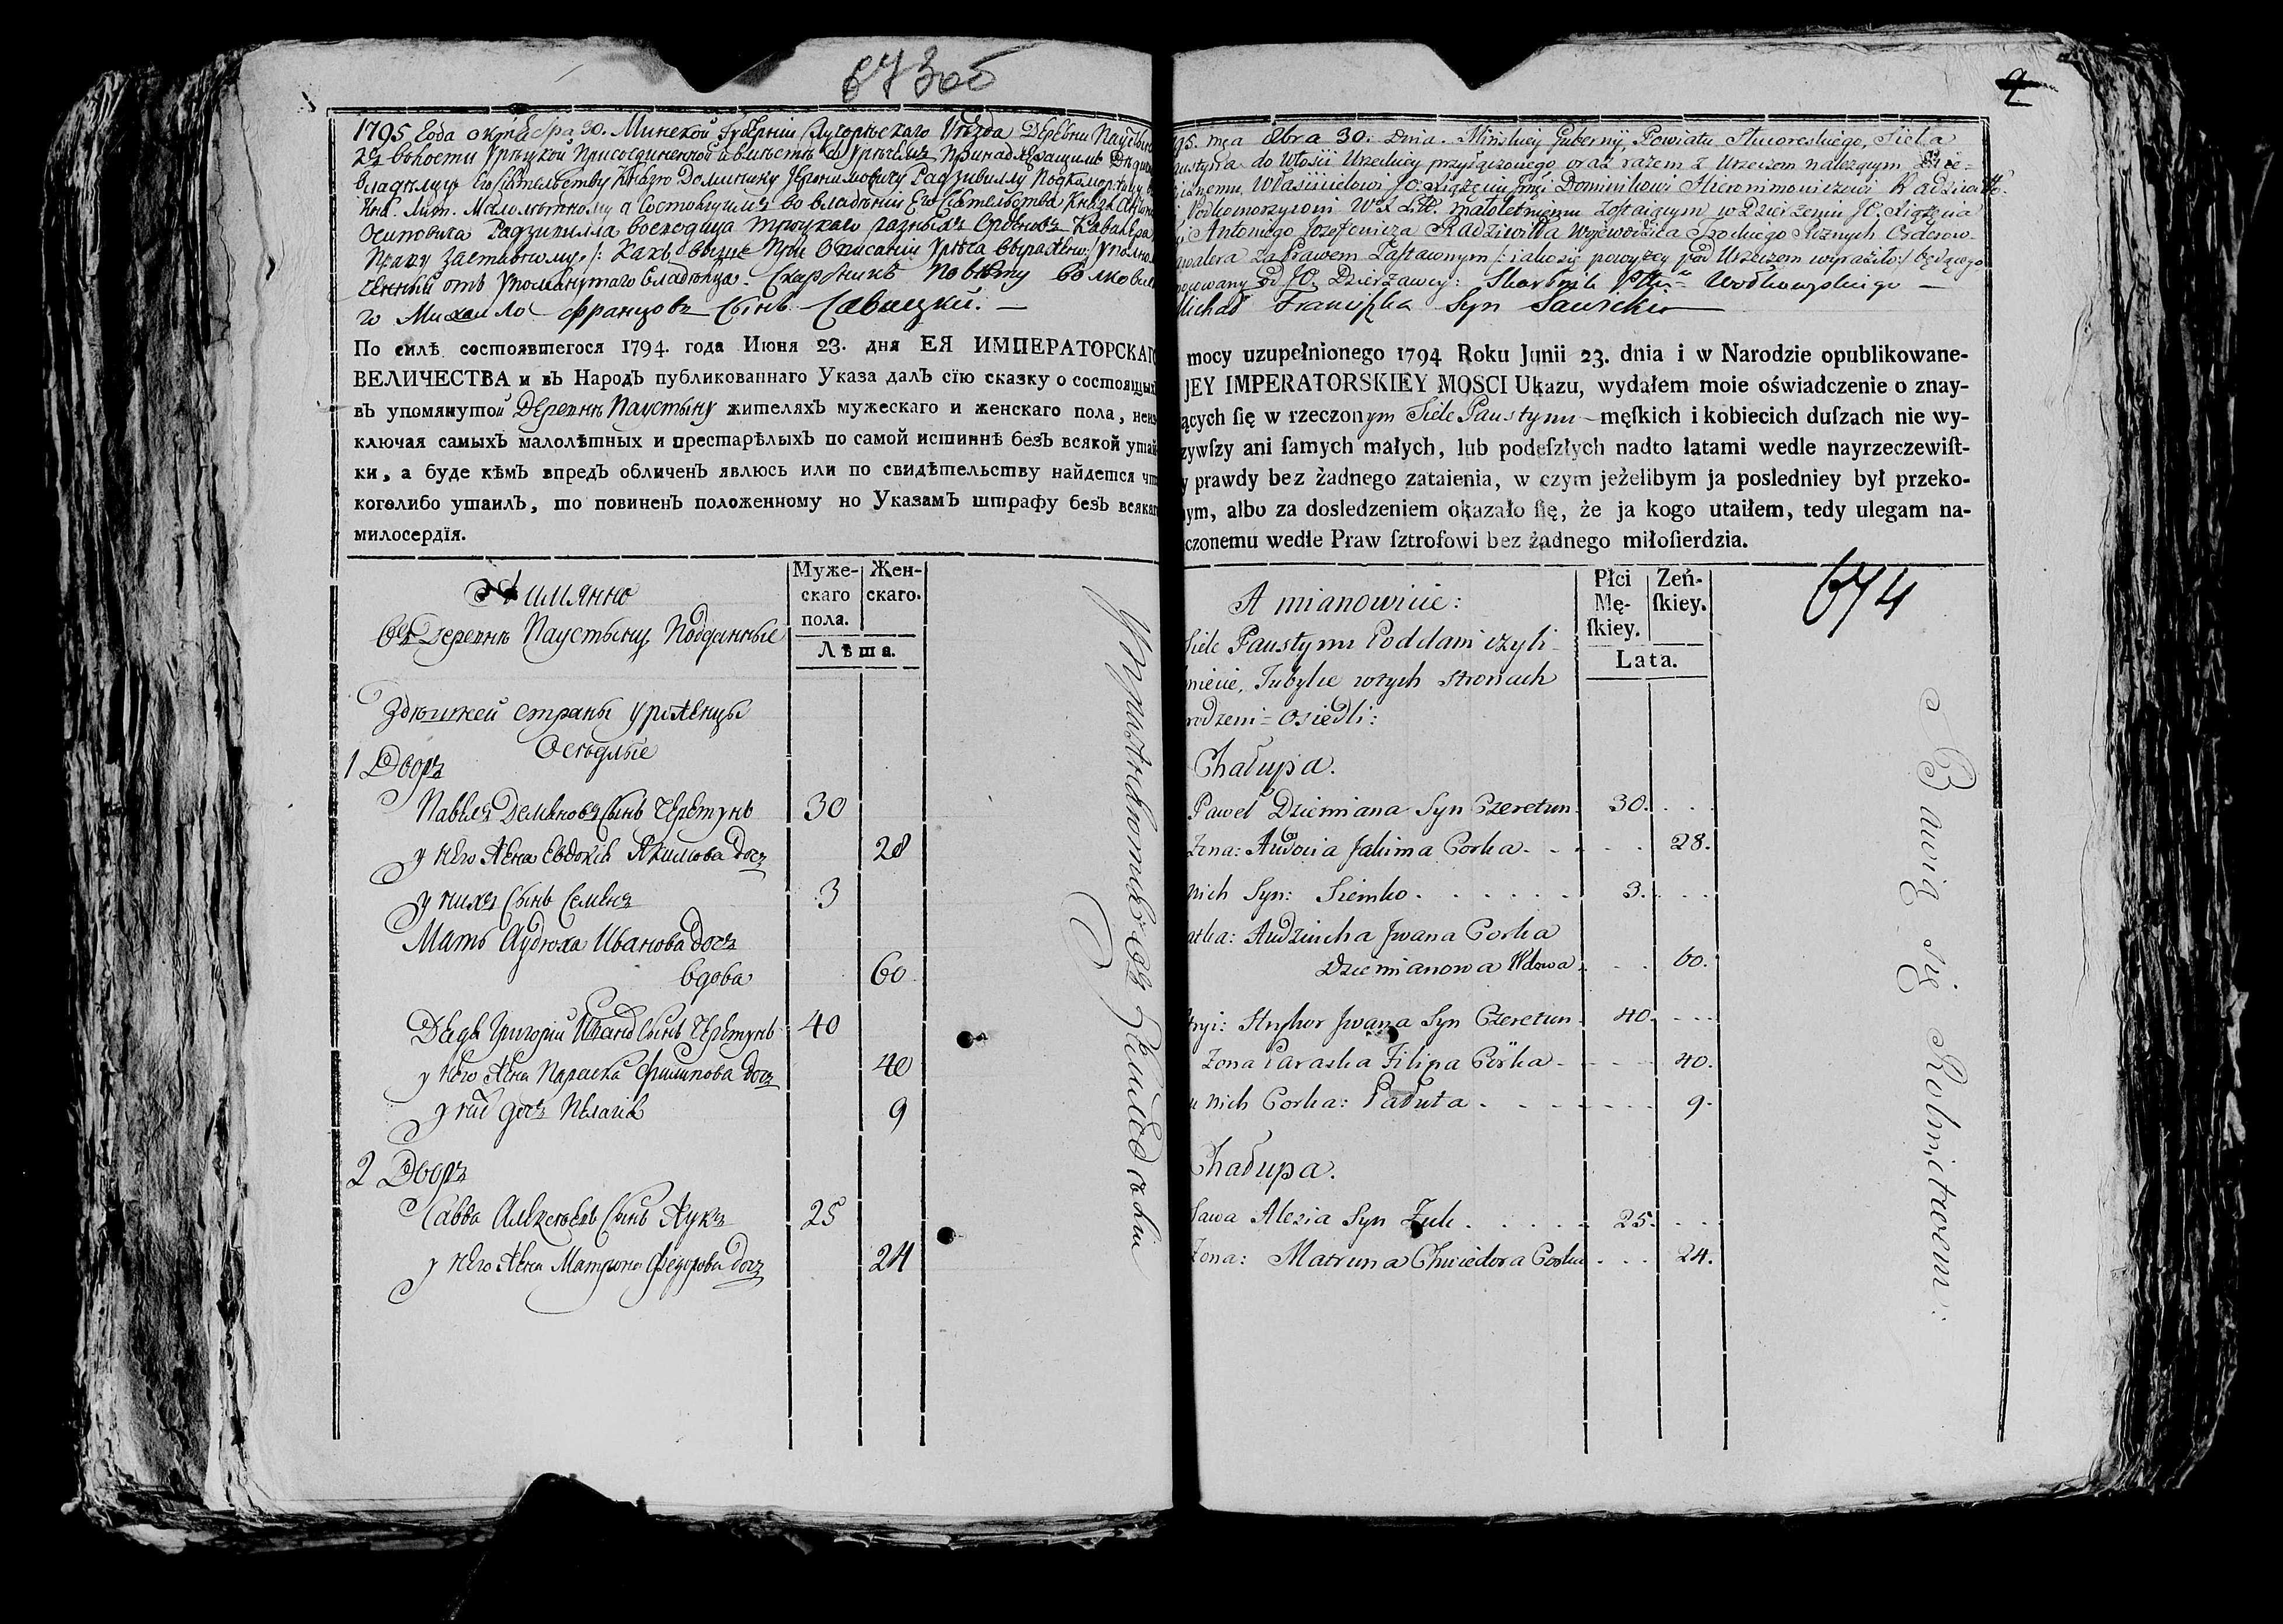 673об
1795 Года октебра 30. Минской Губерніи Слуцорьскаго Уезда Деревни Паустын
волости Урецкой Присоединенной и вместе съ Уречьемъ принадлежащимъ
владельцу Его Сіятельству Князю Доминику Іеронимовичу Радзивиллу Подкоморіему
Кня. Лит. Малолетному а Состоящимъ во владеніи Его Сіятельства Князя Антона
Осиповича Радзивилла воеводица троцкаго разныхъ Орденовъ Кавалера
Праву Заставному /: Какъ выше При Описаніи Уреча выражено :/ Уполно
ченный отъ упомянутаго владельца. Скарбникъ Повету Волковы
го Михаило Францовъ Сынъ Савицкій. —
По силѣ состоявшегося 1794. года Июня 23. дня ЕЯ ИМПЕРАТОРСКАГО
ВЕЛИЧЕСТВА и въ Народъ публикованнаго Указа далъ сїю сказку о состоящихъ
въ упомянутой Деревне Паустыну жителяхъ мужескаго и женскаго пола, неи
ключая самыхъ малолѣтныхъ и престарѣлыхъ по самой истиннѣ безъ всякой утай
ки, а буде кѣмъ впредъ обличенъ явлюсь или по свидѣтельству найдется чт
коголибо утаилъ, то повиненъ положенному по Указамъ штрафу безъ всякаг
милосердїя.
А имянно
Въ Деревне Паустыну Подданные
Здешней страны уроженцы
Оседлые
Муже-
скаго
пола.
Жен-
скаго.
Лѣта.
1 Дворъ
Павелъ Демяновъ Сынъ Черетунъ 30
у него Жена Евдокія Якимова дочь 28
у нихъ Сынъ Семенъ 3
Мать Аудюха Иванова дочь
вдова 60
Дядя Григорій Ивановъ Сынъ Черетунъ 40
у него Жена Параска Филипова дочь 40
у ней дочь Пелагія 9
2 Дворъ
Савва Алексеевъ Сынъ Жукъ 25
у него Жена Матрона Федорова дочь 24
2
95. mca 8bra 30. Dnia. Mińskiey Gubernij, Powiatu Słuzoreskiego, Sieła
austyna do Włości Urzeckiey przyłączonego oraz razem z Urzeczem należącym Dzie-
icznemu Właścicielowi JO. Xiążęciu Jmci Dominikowi Hieronimowiczowi Radziwiłł.
Podkomorzycowi W. X. Litt. małoletniemu zostaiącym w Dzierżeniu JO. Xiążęcia
Antoniego Jozefowicza Radziwiłła Wojewodzica Trockiego Rożnych Orderow
awalera za Prawem Zastawnym /: iako się powyżey pod Urzeczem wyraziło :/ będącego
mocowany od JO. Dzierżawcy: Skarbnik Pttu Wołkowyskiego —
Michał Franciszka Syn Sawicki
mocy uzupełnionego 1794 Roku Junii 23. dnia i w Narodzie opublikowane-
JEY IMPERATORSKIEY MOSCI Ukazu, wydałem moie oświadczenie o znay-
ących ſię w rzeczonym Siele Paustynu męſkich i kobiecich duſzach nie wy-
zywſzy ani ſamych małych, lub podeſzłych nadto latami wedle nayrzeczewiſt-
y prawdy bez żadnego zataienia, w czym jeżelibym ja posledniey był przeko-
ym, albo za dosledzeniem okazało ſię, że ja kogo utaiłem, tedy ulegam na-
czonemu wedle Praw ſztrofowi bez żadnego miłoſierdzia.
A mianowicie:
Siele Paustynu Poddani czyli
miecie, Tubylce w tych stronach
rodzeni = Osiedli:
Płci
Mę-
ſkiey.
Zeń-
ſkiey.
Lata.
674
Chałupa.
Paweł Dziemiana Syn Czeretun 30.
Zona: Audocia Jakima Corka 28.
nich Syn: Siemko 3.
atka: Audziucha Jwana Corka
Dziemianowa Wdowa 60.
tryi: Hryhor Jwana Syn Czeretun 40.
Zona Paraska Filipa Córka 40.
u Nich Corka: Pałuta 9.
Chałupa.
Sawa Alexia Syn Zuk 25.
Zona: Matruna Chwiedora Corka 24.